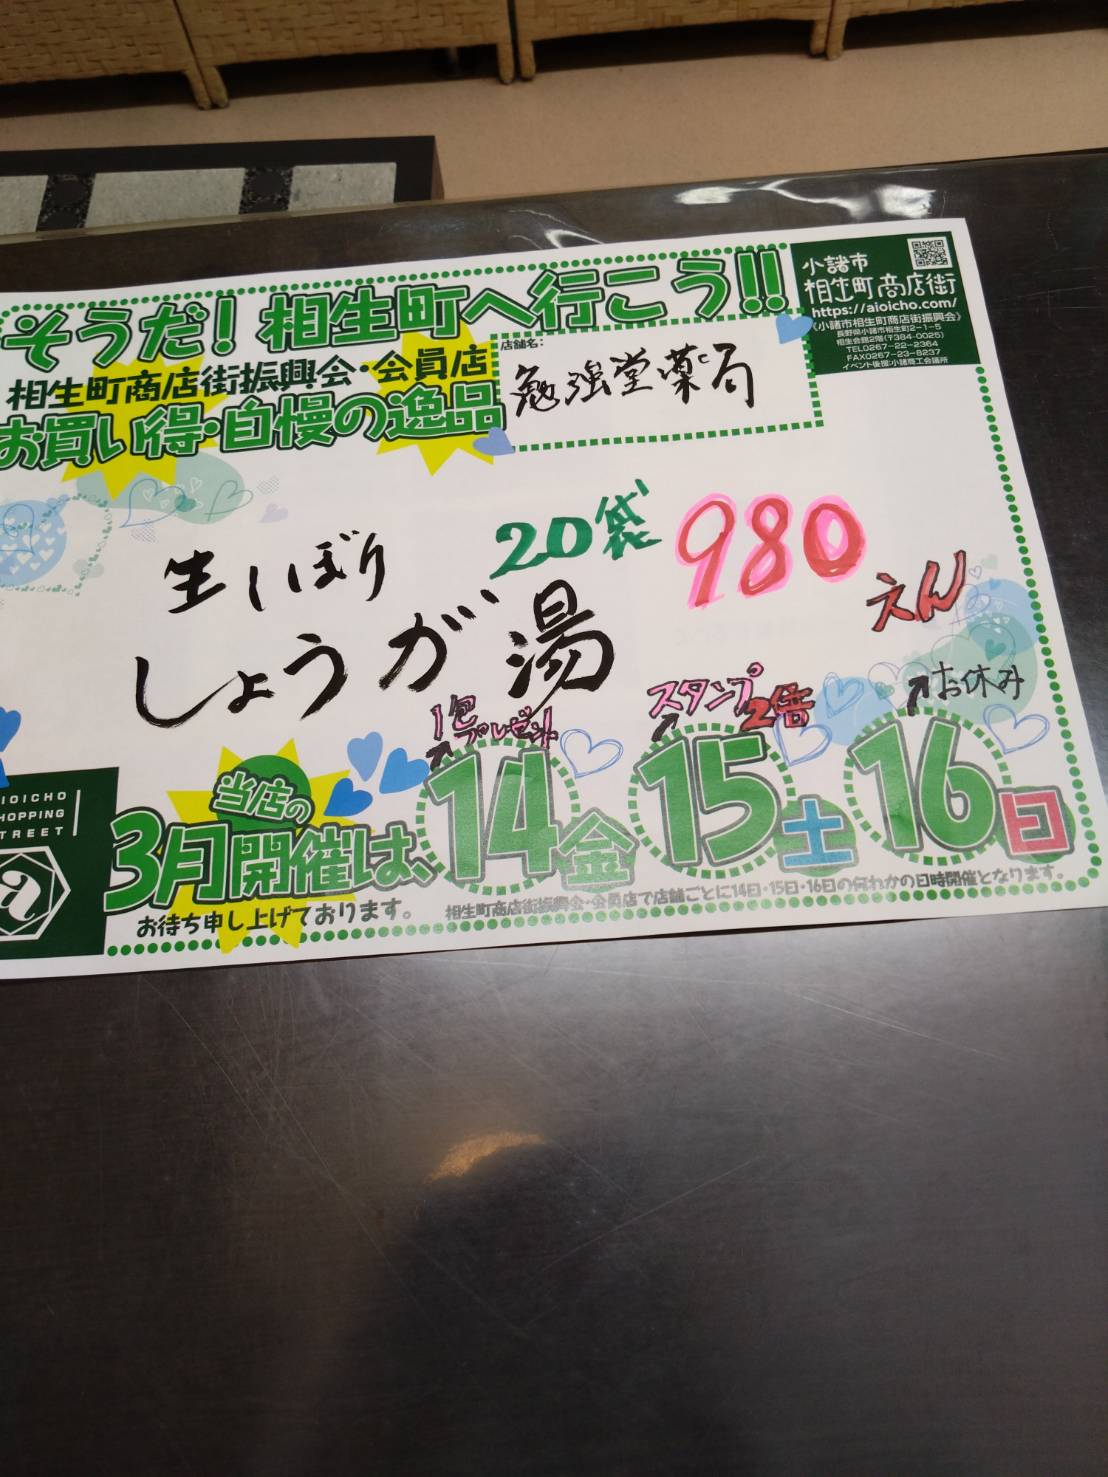 そうだ！相生町へ行こう!!
相生町商店街振興会・会員店
お買い得・自慢の逸品
店舗名：
勉強堂薬局
小諸市
相生町商店街
https://aioicho.com/
《小諸市相生町商店街振興会》
長野県小諸市相生町2-1-5
相生会館2階(〒384-0025)
TEL0267-22-2364
FAX0267-23-8237
イベント後援:小諸商工会議所
生しぼり
しょうが湯
20袋
980
えん
1包
プレゼント
スタンプ
2倍
お休み
当店の
3月開催は、14金 15土 16日
お待ち申し上げております。
相生町商店街振興会・会員店で店舗ごとに14日・15日・16日の何れかの日時開催となります。
AIOICHO
SHOPPING
STREET
a